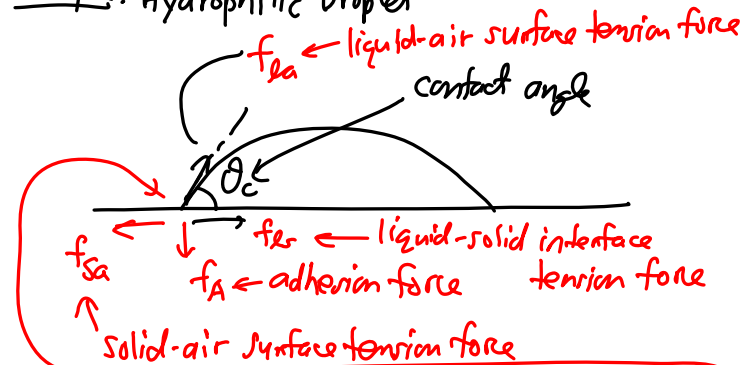 Hydrophilic Droplet
f_la ← liquid-air surface tension force
contact angle
θ_c
f_ls ← liquid-solid interface
tension force
f_sa
f_A ← adhesion force
solid-air surface tension force